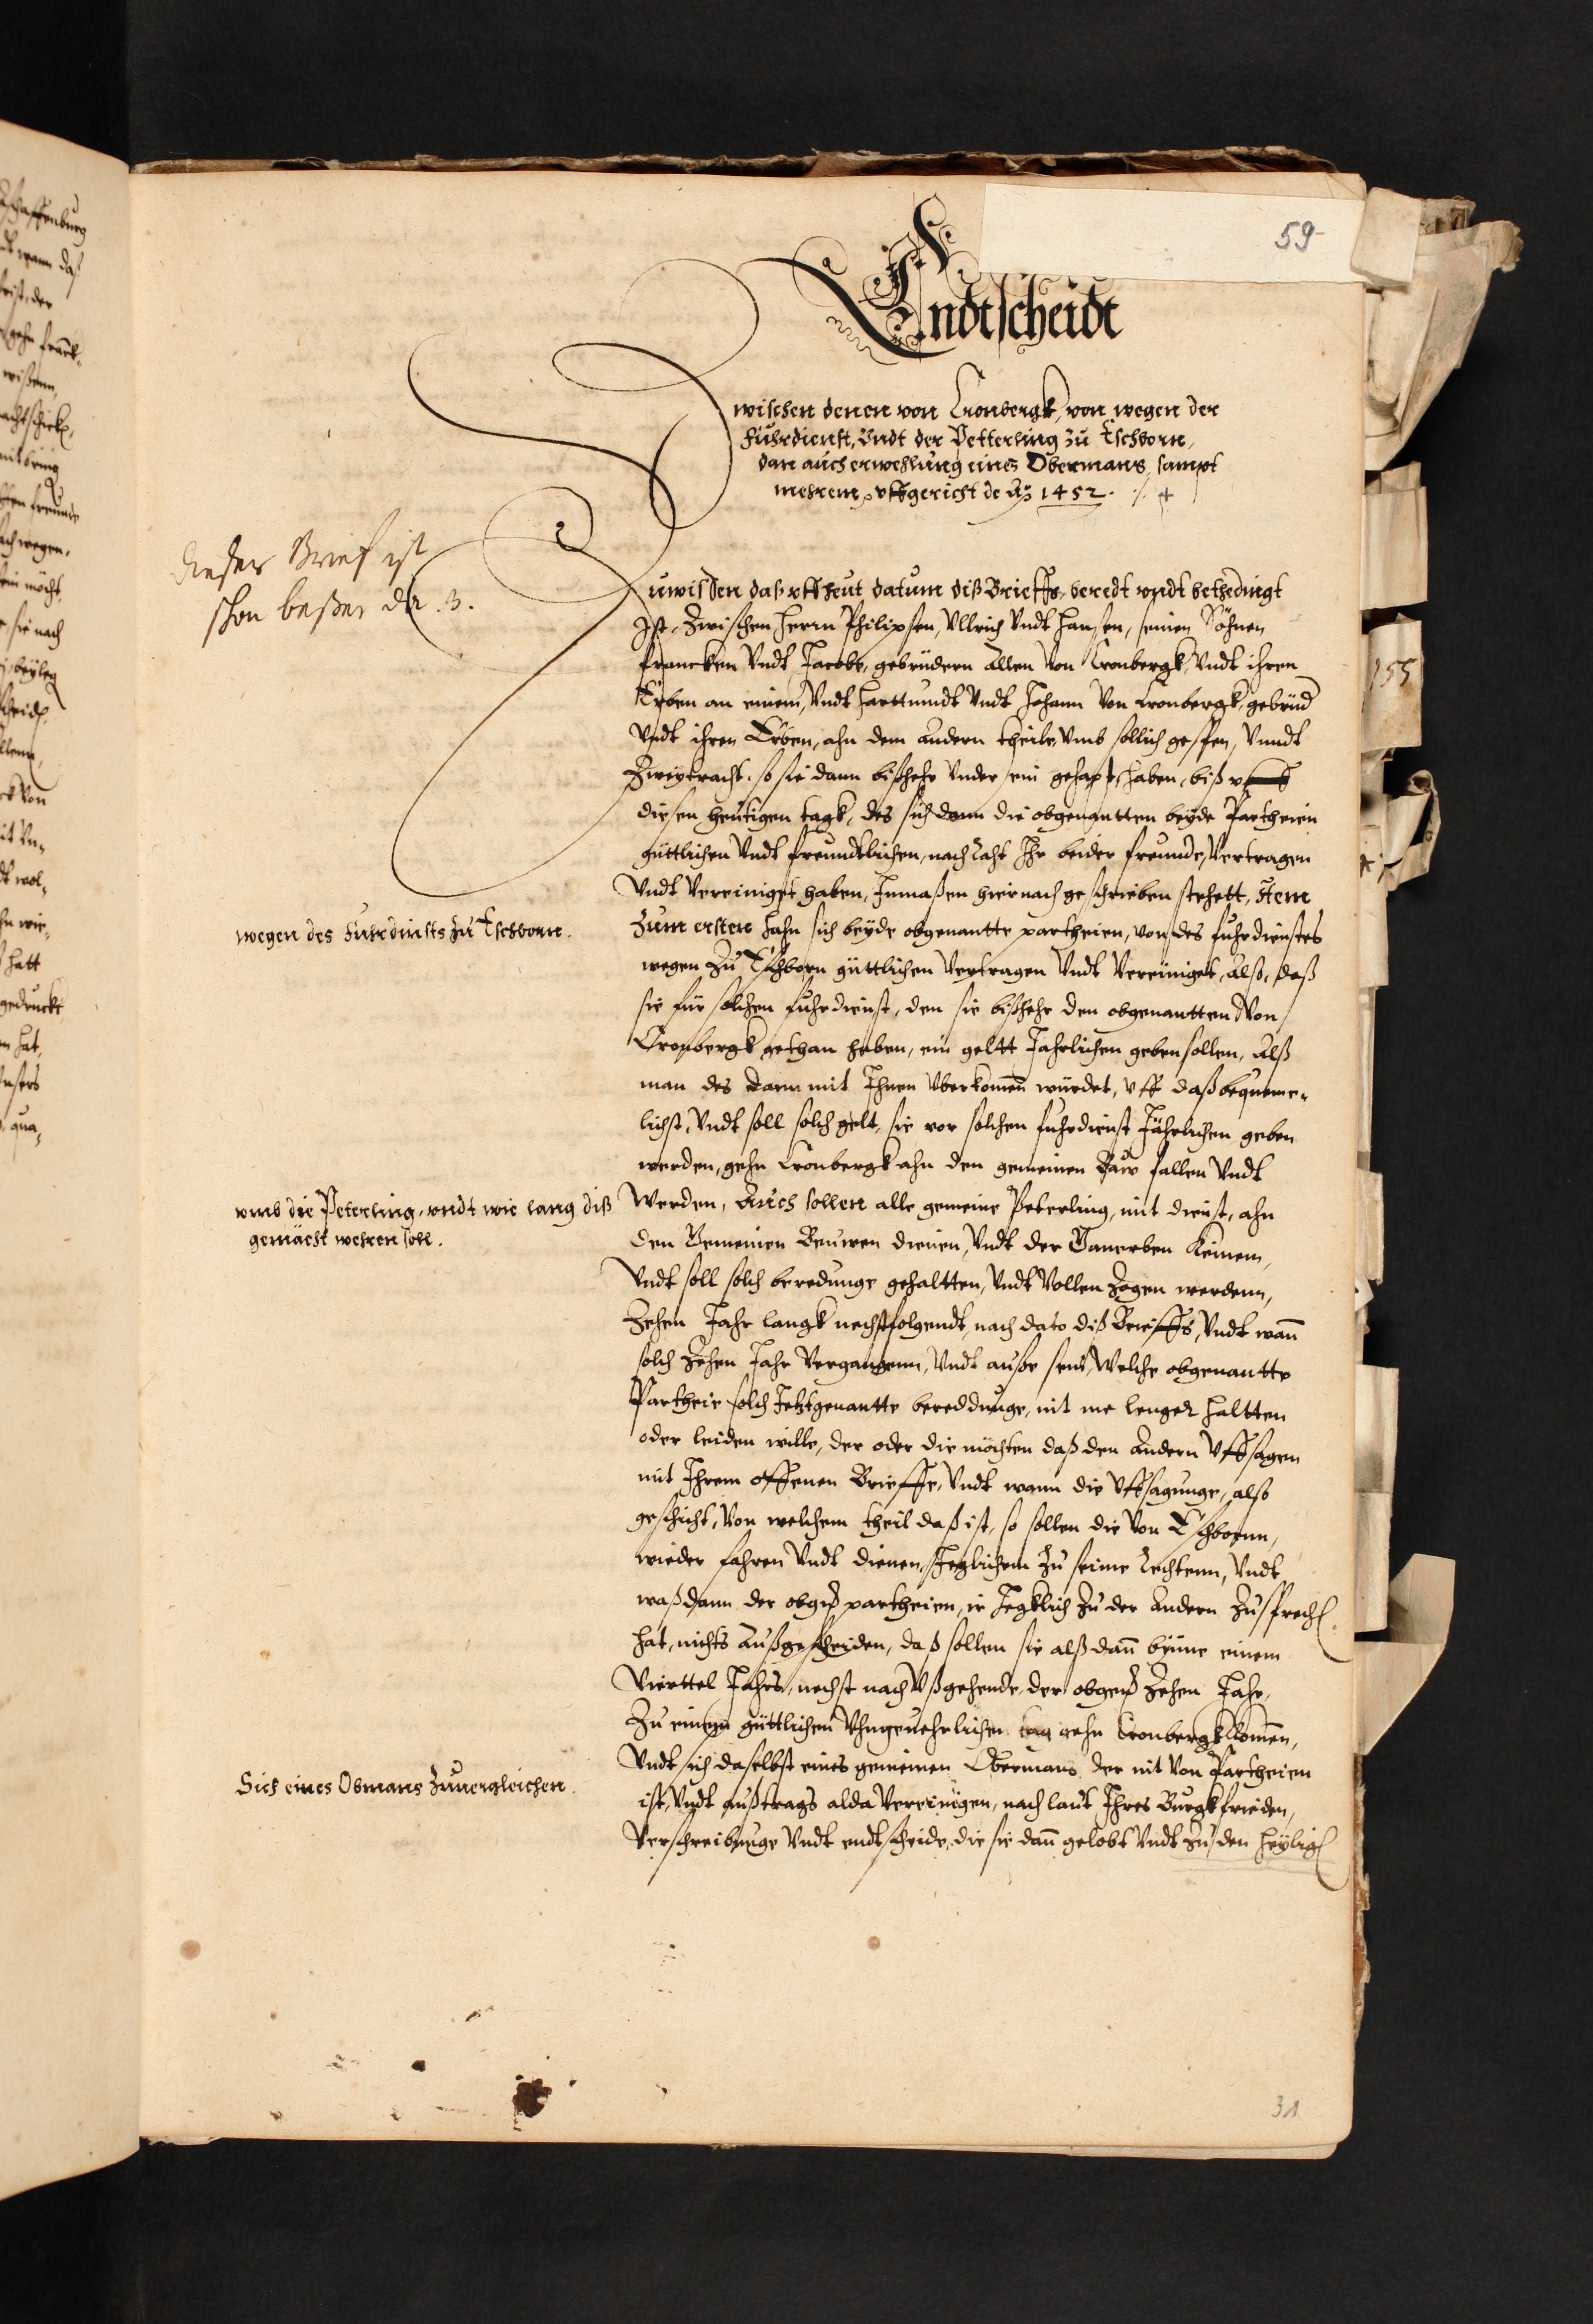 59
Endtscheidt
Zwischen denen von Cronbergk, von wegen der
Fuhrdienst, Undt der Petterling zu Eschborn,
dan auch erwehlung eines Obermans, sampt
mehrem, uffgericht de Ao 1452.
dießer Brief ist
schon beßer da. 3.
Zuwissen daß uff heut datum diß Brieffs, beredt undt bethedingt
Ist, Zwischen Herrn Philipsen, Ullrich Undt Hansen, seinen Söhnen
francken Undt Jacobe, gebrüdern Allen Von Cronbergk, Undt ihren
Erben an einem, Undt Harttmudt Undt Johann Von Cronbergk, gebrüd
Undt ihren Erben, ahn dem Andern theile, Umb sollich, Unndt
Zweytracht, so sie dann bißhehr Under ein gehapt, haben, biß uff
diesen heutigen tagk, des sich dann die obgenantten beyde Partheien
güttlichen Undt freundtlichen, nach Raht Ihr beider freunde, Vertragen
Undt Vereiniget haben, Inmaßen hiernach geschrieben stehett, Item
wegen des Fuhrdiensts zu Eschborn.
Zum ersten hahn sich beyde obgenantte partheien, von des fuhrdienstes
wegen Zu Eschborn güttlichen Vertragen Undt Vereiniget, Also, daß
sie für solchen fuhrdienst, den sie bißhehr den obgenantten Von
Cronbergk gethan haben, ein geltt Jahrlichen geben sollen, Alß
man des dann mit Ihnen Uberkomen würdet, Uff daß bequeme-
lichst, Undt soll solch gelt, sie vor solchen fuhrdienst Jährlichen geben
werden, gehn Cronbergk ahn den gemeinen Bauw fallen Undt
umb die Peterling, undt wie lang diß
gemächt wehren soll.
Werden, Auch sollen alle gemeine Peterling, mit dienst, ahn
den Gemeinen Beuwen dienen, Undt der Ganerben Keinem,
Undt soll solch beredunge gehaltten, Undt Vollenzogen werdenn,
Zehen Jahr langk nechstfolgendt, nach dato diß Brieffs, Undt wann
solch Zehen Jahr Vergangenn, Undt ausse sint, Welche obgenantte
Partheie solch Jetztgenantte bereddunge, nit me lenger haltten
oder leiden wille, der oder die möchten daß den Andern Uffsagen
mit Ihrem offenen Brieffe, Undt wann die Uffsagunge, also
geschicht, Von welchem theil daß ist, so sollen die Von Eschbornn,
wieder fahren Undt dienen, Jeglichem Zu seime Rechtenn, Undt
waß dann der obgn partheien, ie Jegklich Zu der Andern Zusprech
hat, nichts Außgescheiden, daß sollen sie alß dann binne einem
Vierttel Jahrs, nechst nach Ußgehende, der obgen Zehen Jahr,
Zu einem güttlichen Ungeuehrlichen tag gehn Cronbergk komen,
Sich eines Obmans zuuergleichen.
Undt sich daselbst eines gemeinen Obermans der nit Von Partheien
ist, Undt außtrags alda Vereinigen, nach laut Ihres Burgkfrieden,
Verschreibunge Undt endtscheide, die sie dann gelobt Undt Zu den Heylig
31
155